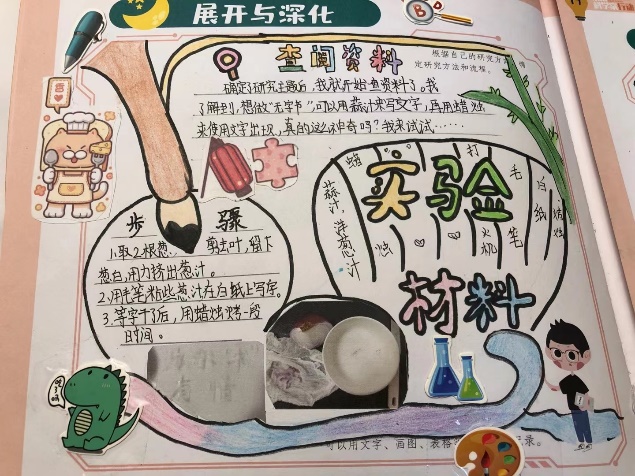 展开与深化
查阅资料
根据自己的研究方
定研究方法和流程。
确定了研究主题后，我就开始查资料了。我
了解到，想做“无字书”，可以用蒜汁来写文字，再用蜡烛
来使文字出现，真的这么神奇吗？我来试试……
步骤
1.取2根葱，剪去叶，留下
葱白，用力挤出葱汁。
2.用毛笔粘些葱汁在白纸上写字。
3.等字干了后，用蜡烛烤一段
时间。
实验
材料
蒜汁、洋葱汁
蜡烛
打火机
毛笔
白纸
可以用文字、画图、表格
录。